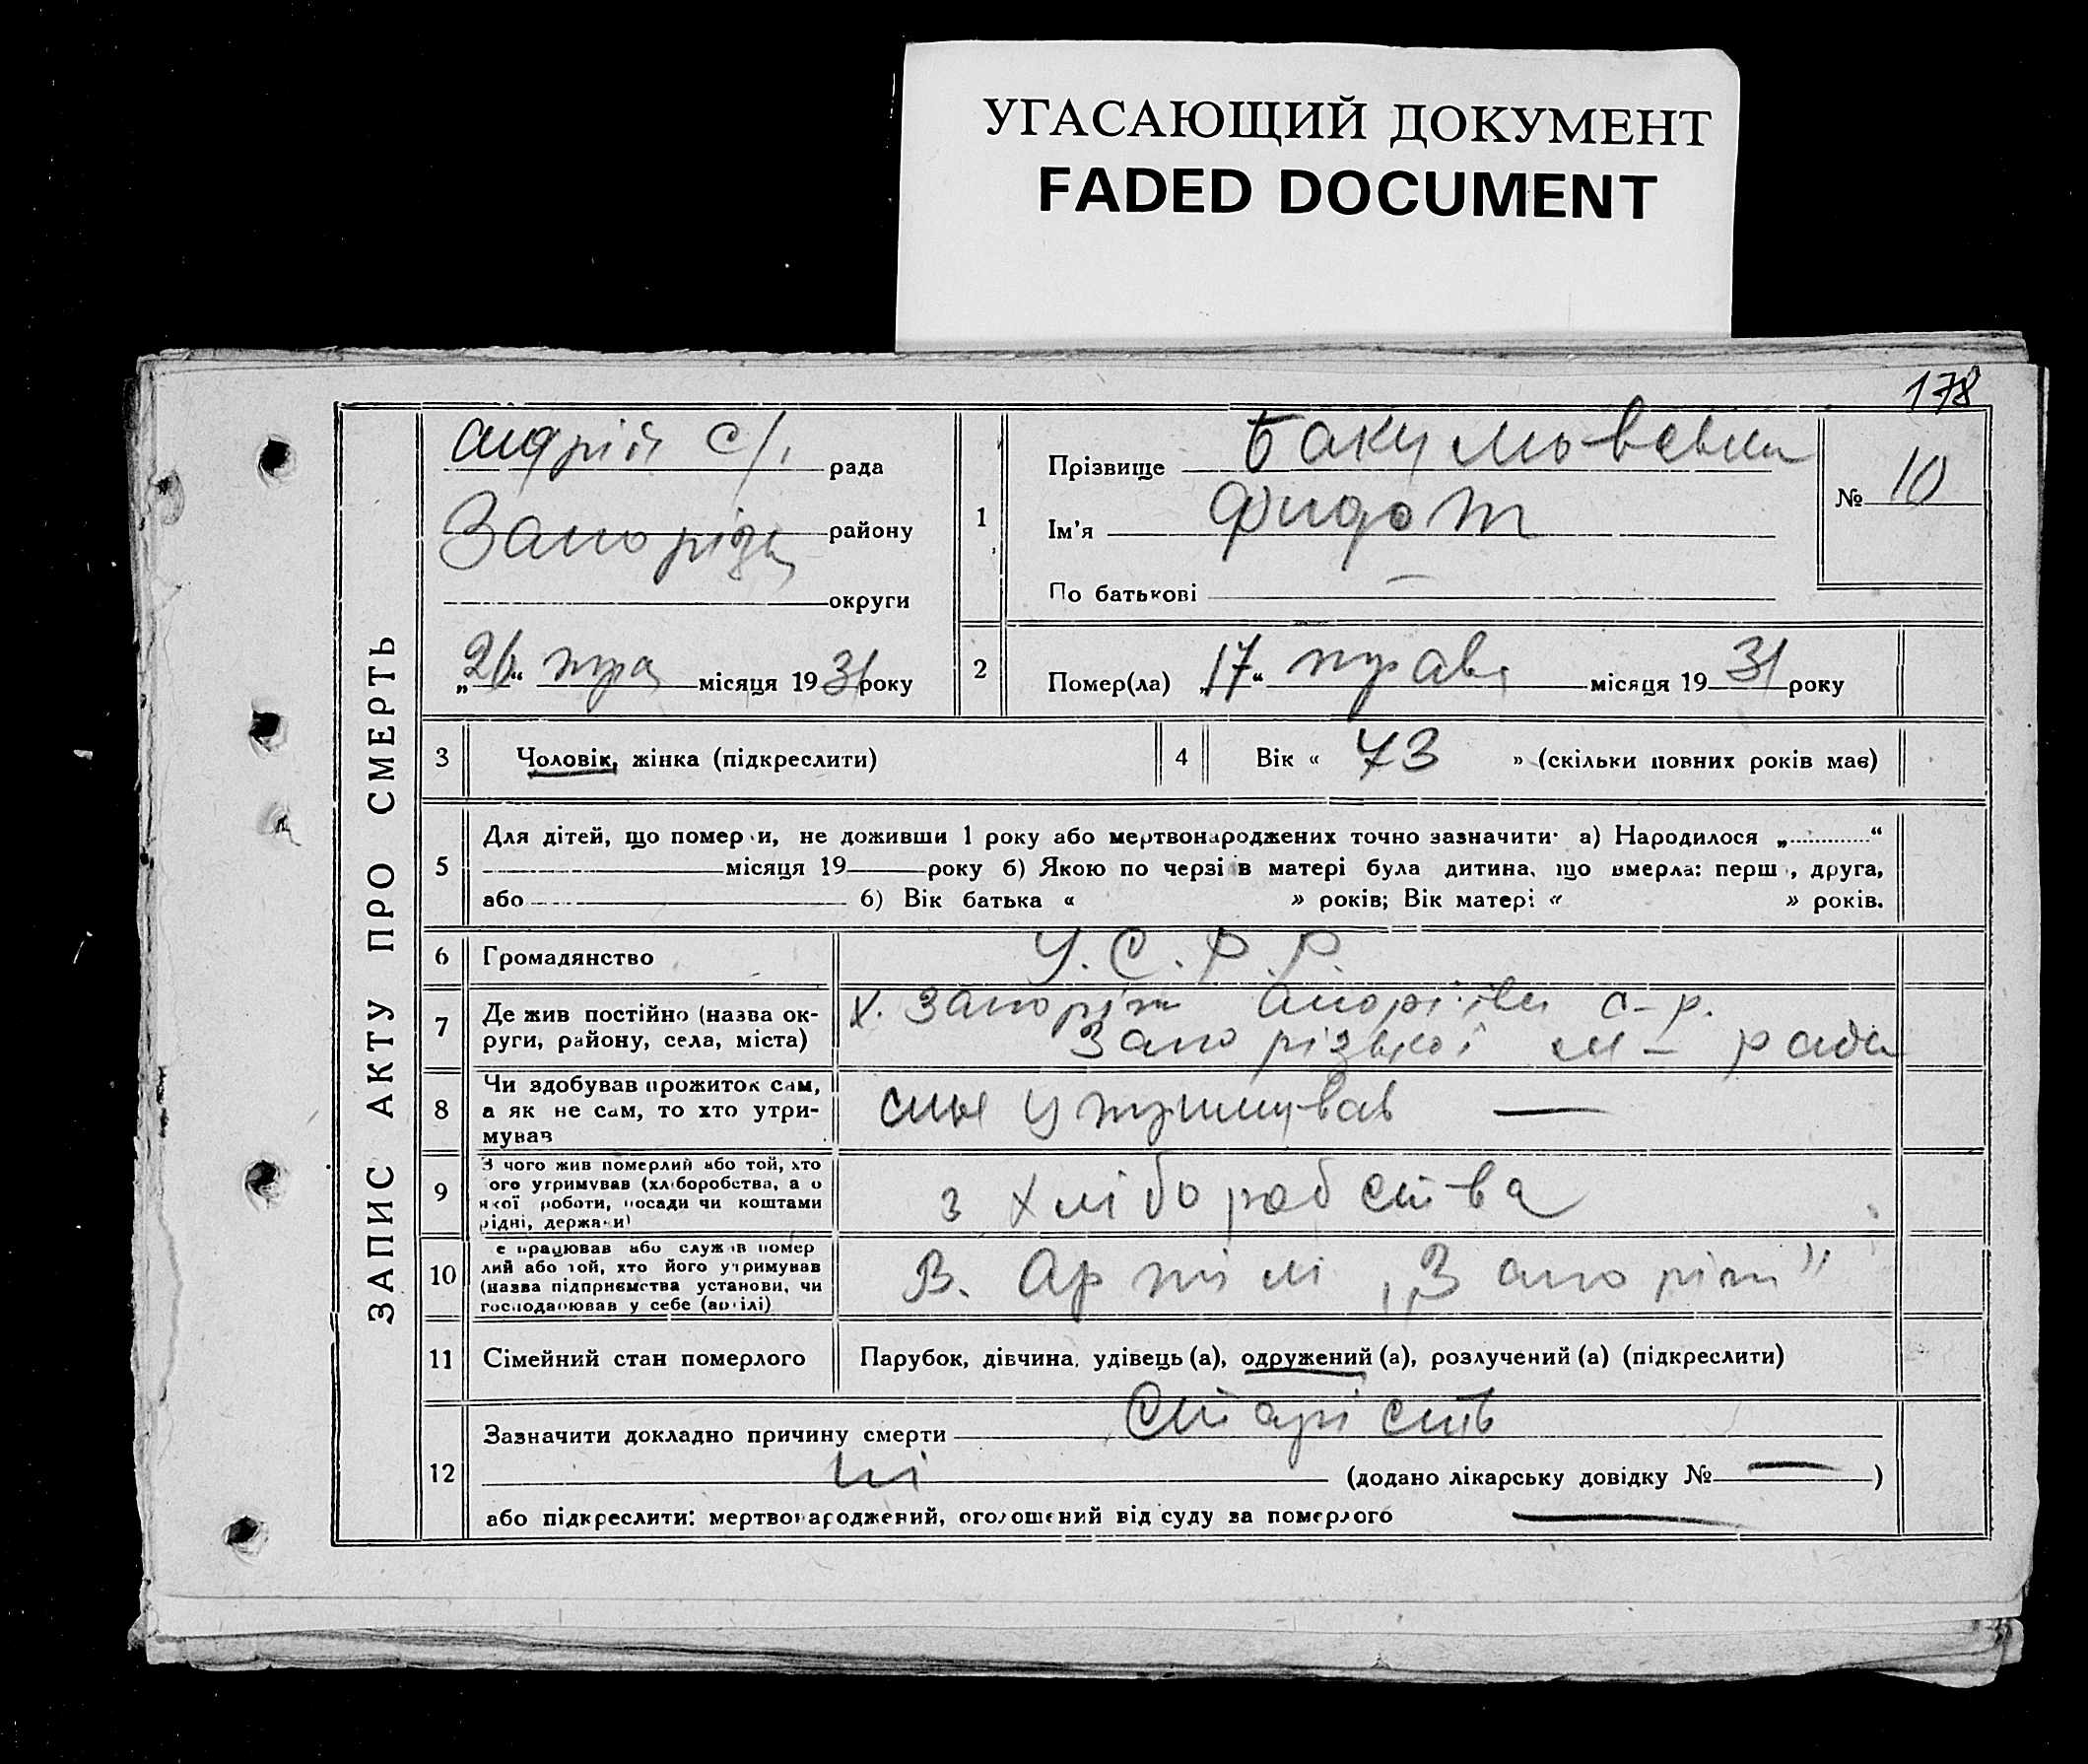 УГАСАЮЩИЙ ДОКУМЕНТ
FADED DOCUMENT
178
ЗАПИС АКТУ ПРО СМЕРТЬ
Андріів с/. рада
Запорізь району
округи
„26“ тра місяця 1931 року
1
Прізвище Бакумовськи
Ім'я Фидот
По батькові —
№ 10
2
Помер(ла) „17“ травн місяця 1931 року
3 Чоловік, жінка (підкреслити)
4 Вік « 73 » (скільки повних років має)
5
Для дітей, що померли, не доживши 1 року або мертвонароджених точно зазначити: а) Народилося „............“
місяця 19 року б) Якою по черзі в матері була дитина, що вмерла: перша, друга,
або 6) Вік батька « » років; Вік матері « » років.
6 Громадянство У.С.Р.Р.
7 Де жив постійно (назва ок-
руги, району, села, міста)
х. Запоріж с-р.
Запорізької м- рада
8 Чи здобував прожиток сам,
а як не сам, то хто утри-
мував
син утримував —
9 З чого жив померлий або той, хто
його утримував (хліборобства, а о
якої роботи, посади чи коштами
рідні, держави)
з хліборобства
10 Де працював або служив помер
лий або той, хто його утримував
(назва підприємства установи, чи
господарював у себе (артілі)
В. Артілі „Запоріж"
11 Сімейний стан померлого Парубок, дівчина, удівець (а), одружений (а), розлучений (а) (підкреслити)
12
Зазначити докладно причину смерти Старість
ні (додано лікарську довідку № — )
або підкреслити: мертвонароджений, оголошений від суду за померлого —